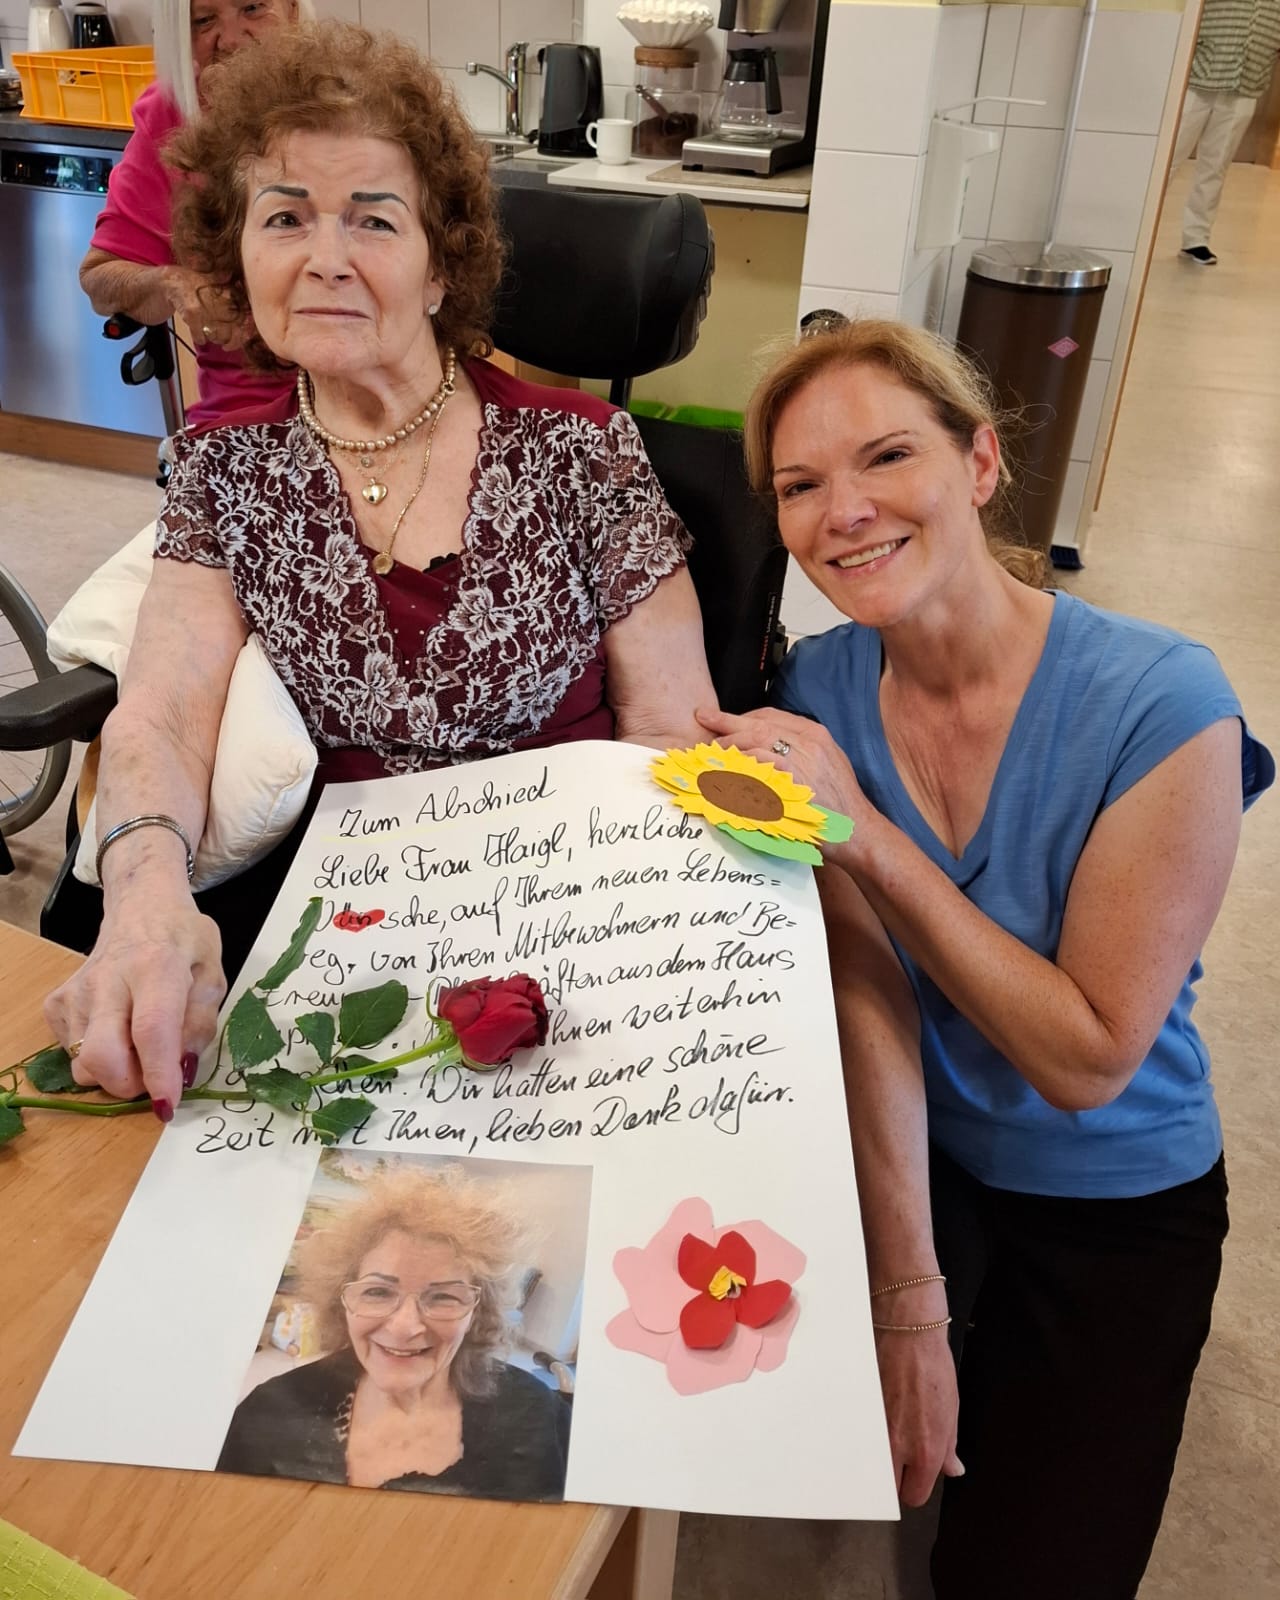 Zum Abschied
Liebe Frau Haigl, herzliche
Wünsche, auf Ihrem neuen Lebens=
weg, von Ihren Mitbewohnern und Be-
treuungs- aus dem Haus
Ihnen weiterhin
gehen. Wir hatten eine schöne
Zeit mit Ihnen, lieben Dank dafür.